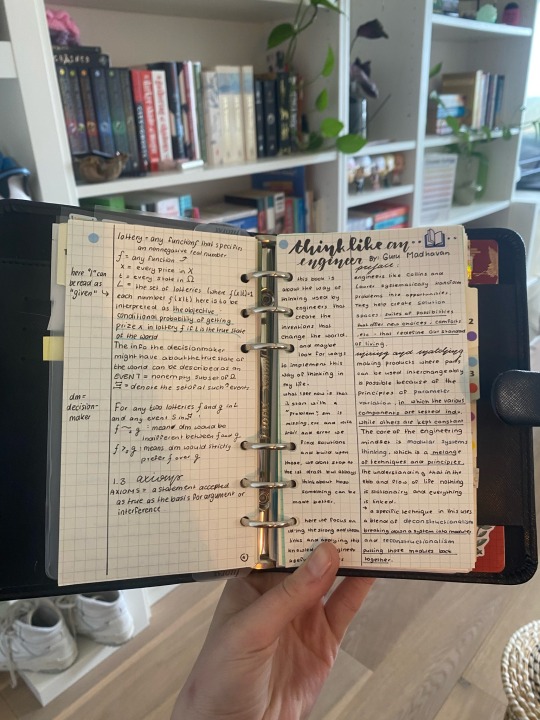 lottery = any function f that specifies
an nonnegative real number
f = any function
x = every prize in X
t = every state in Ω
L = the set of lotteries (where f(x|t)=1
each number f(x|t) here is to be
interpreted as the objective
conditional probability of getting
prize x in lottery f if t is the true state
of the world
here "|" can
be read as
"given" →
The info the decisionmaker
might have about the true state of
the world can be described as an
EVENT = nonempty subset of Ω
= denote the set of all such events
dm =
decision-
maker
For any two lotteries f and g in L
and any event S in
f ~ₛ g : means dm would be
indifferent between f and g
f >ₛ g : means dm would strictly
prefer f over g
1.3 axioms
AXIOMS = a statement accepted
as true as the basis for argument or
interference
4
think like an
engineer By: Guru Madhavan
this book is
about the way of
thinking used by
engineers that
create the
inventions that
change the world.
and maybe
look for ways
to implement this
way of thinking in
my life.
what i see now is that
it start with a
"problem", sm. is
missing, etc and with
trial and error we
find solutions
and build upon
those. we dont stop to
think about how
something can be
made better.
here we focus on
using the strong and
links and applying the
preface
engineers like Collins and
Laurer systematically transform
problems into opportunities.
They help create solution
spaces: suites of possibilities
that offer new choices, comforts,
etc - that redefine our standard
of living.
mixing and matching
making products where parts
can be used interchangeably
is possible because of the
principles of parameter
variation, in which the various
components are tested indv.
while others are kept constant
The core of the engineering
mindset is modular systems
thinking, which is a melange
of techniques and principles.
The understanding that in the
ebb and flow of life nothing
is stationary and everything
is linked.
→ a specific technique in this uses
a blend of deconstructionism
breaking down a system into modules
and reconstructionism
putting those modules back
together.